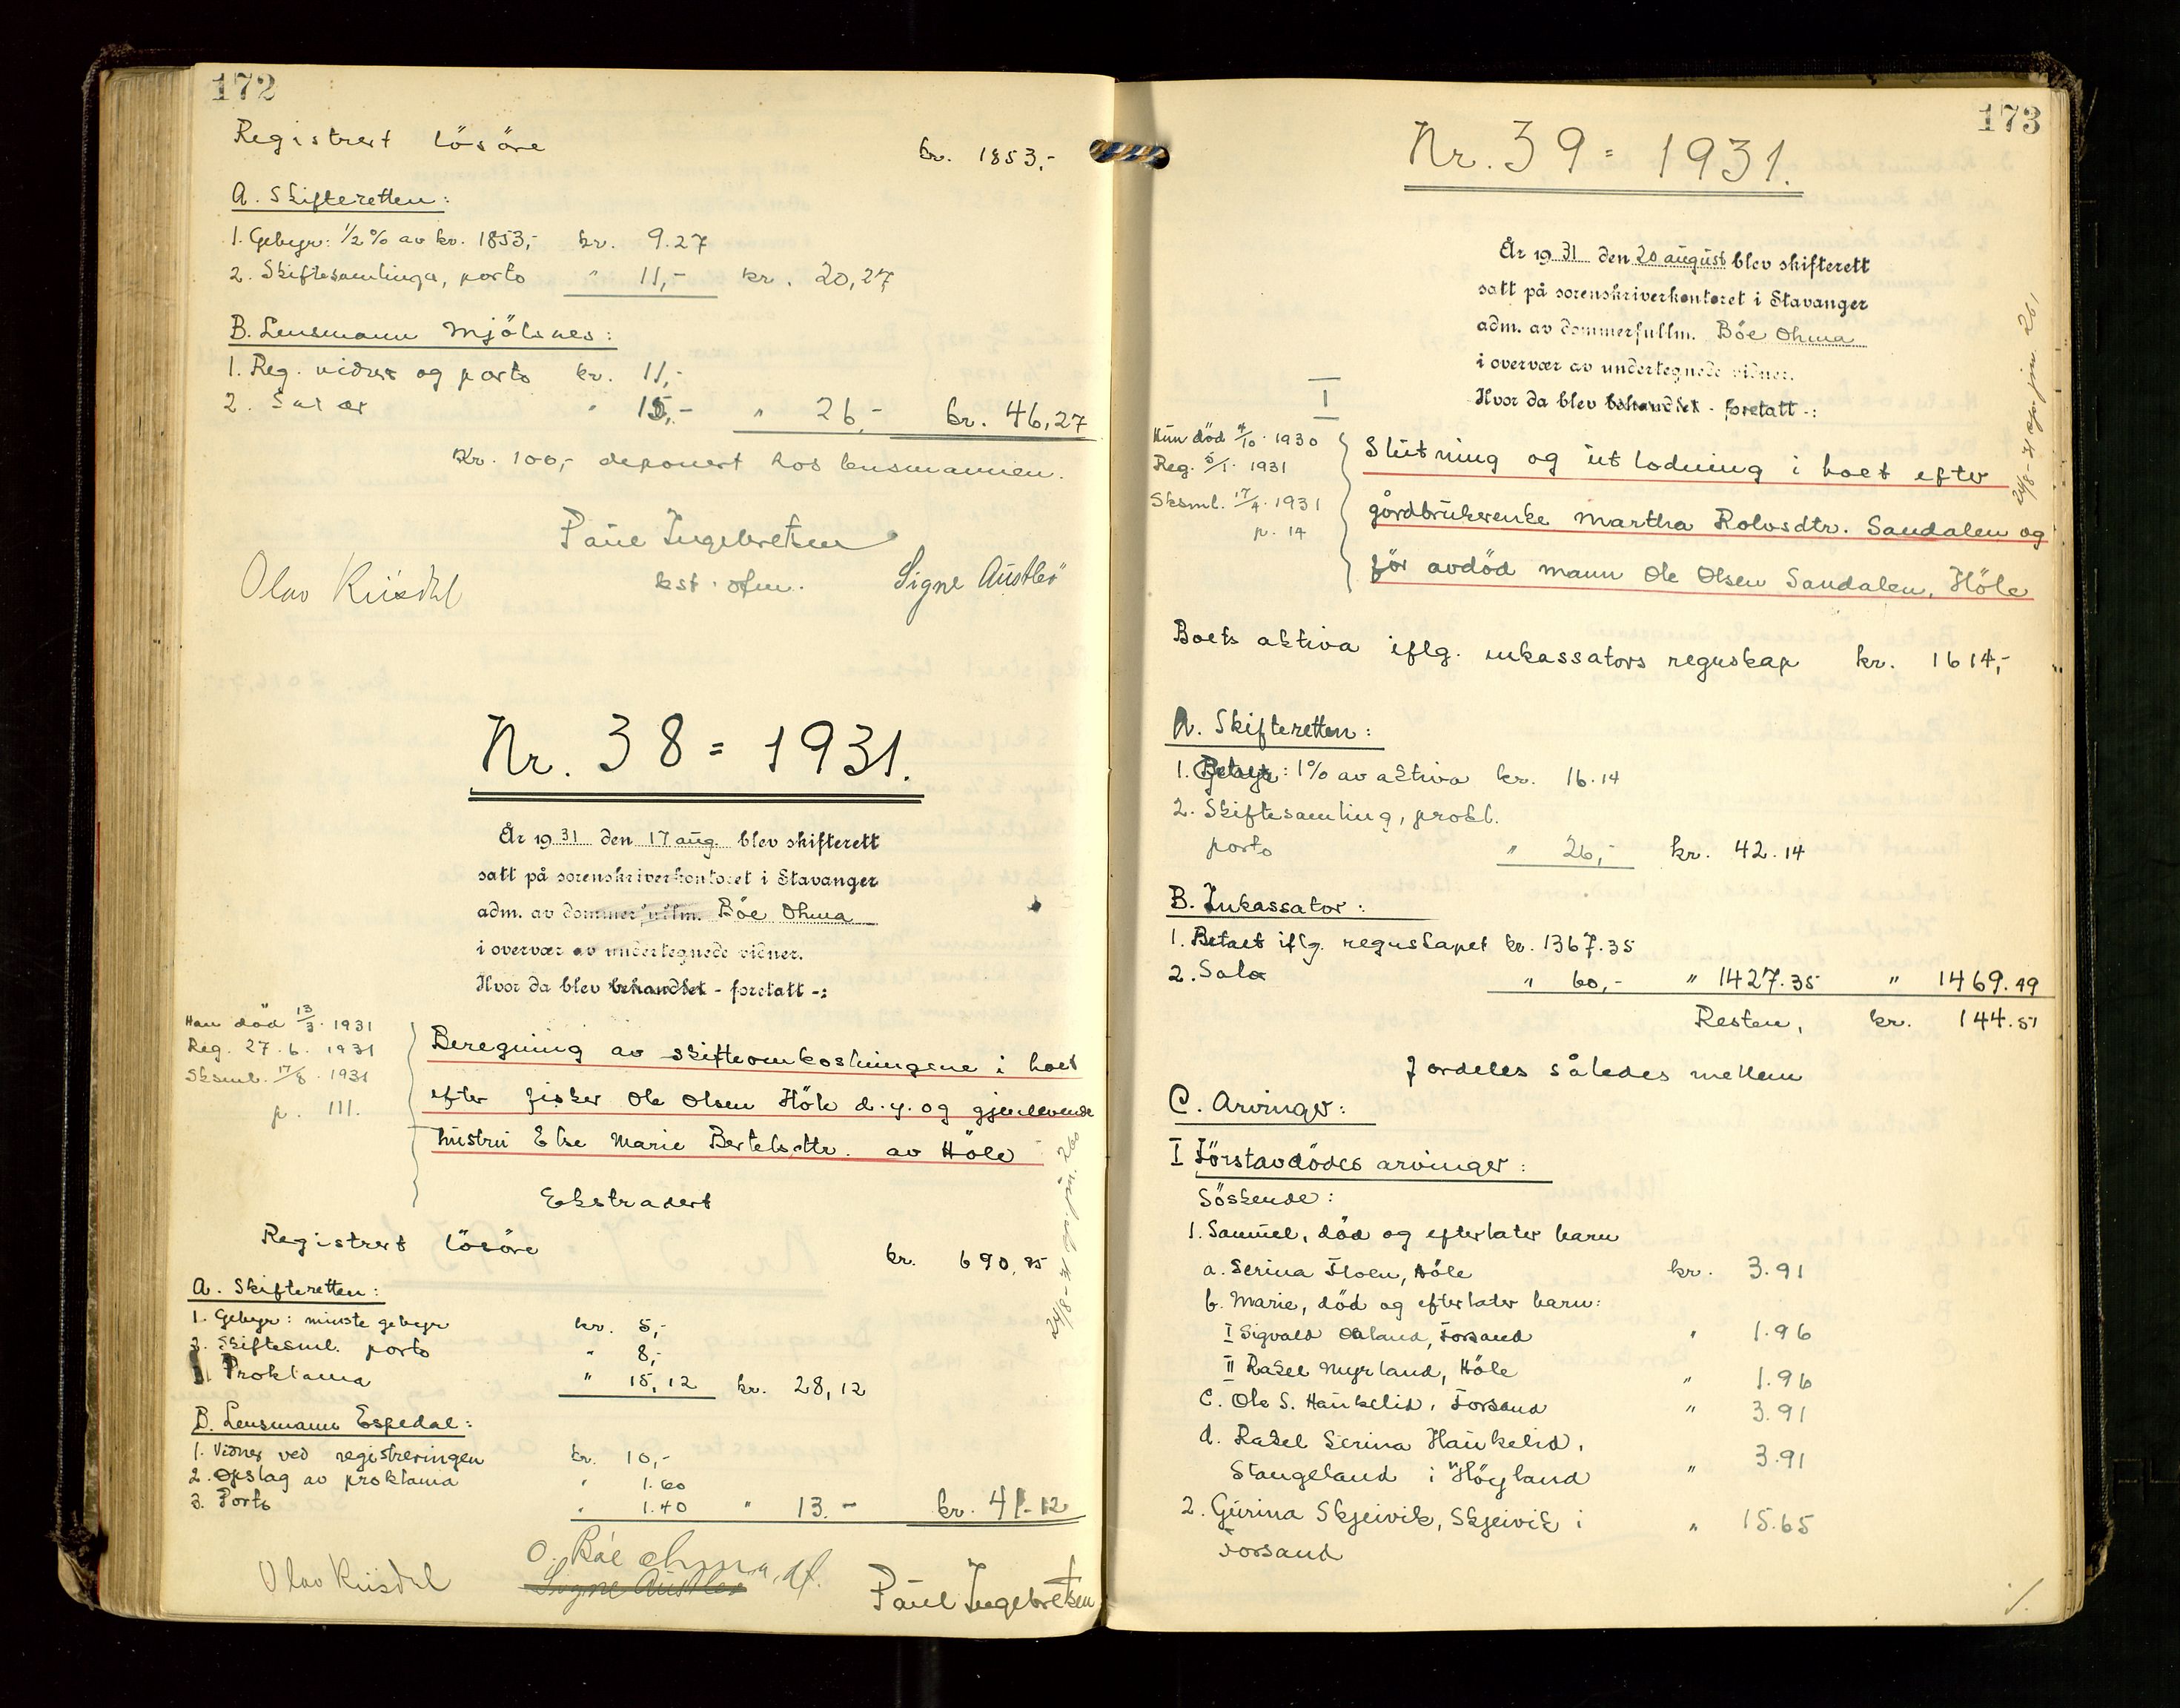 172
Registrert lösöre kr. 1853,-
A. Skifteretten:
1. Gebyr: 1/2 % av kr. 1853,- kr. 9.27
2. Skiftesamlinga, porto " 11,- kr. 20,27
B. Lensmann Mjölsnes:
1. Reg. vidner og porto kr. 11,-
2. Salær " 15,- " 26,- kr. 46,27
Kr. 100,- deponert hos lensmannen.
Paul Ingebretsen
Olav Kiisdal kst. sfm. Signe Austbö
Nr. 38 = 1931.
År 1931 den 17 aug. blev skifterett
satt på sorenskriverkontoret i Stavanger
adm. av dommerfullm. Böe Ohma
i overvær av undertegnede vidner.
Hvor da blev behandlet - foretatt -:
Han död 13/3. 1931
Reg. 27.6. 1931
Sksml. 17/8. 1931
p. 111.
Beregning av skifteomkostningene i boet
efter fisker Ole Olsen Höle d.y. og gjenlevende
hustru Else Marie Bertelsdtr. av Höle
24/8-31 gp. jnr. 260
Ekstradert
Registrert lösöre kr. 690,85
A. Skifteretten:
1. Gebyr: minste gebyr kr. 5,-
2. Skiftesml. porto " 8,-
Proklama " 15,12 kr. 28,12
B. Lensmann Espedal:
1. Vidner ved registreringen kr. 10,-
2. Opslag av proklama " 1.60
3. Porto " 1.40 " 13.- kr. 41.12
O. Böe Ohma, df.
Olav Kiisdal Signe Austbö Paul Ingebretsen
173
Nr. 39 = 1931.
År 1931 den 20 august blev skifterett
satt på sorenskriverkontoret i Stavanger
adm. av dommerfullm. Böe Ohma
i overvær av undertegnede vidner.
Hvor da blev behandlet - foretatt -:
I
Hun död 4/10. 1930
Reg. 5/1. 1931
Sksml. 17/4. 1931
p. 14
Slutning og utlodning i boet efter
gårdbrukerenke Martha Rolvsdtr. Sandalen og
för avdöd mann Ole Olsen Sandalen, Höle
24/8-31 gp. jnr. 261
Boets aktiva iflg. inkassators regnskap kr. 1614,-
A. Skifteretten:
1. Gebyr: 1% av aktiva kr. 16.14
2. Skiftesamling, prokl.
porto " 26,- kr. 42.14
B. Inkassator:
1. Betalt iflg. regnskapet kr. 1367.35
2. Salær " 60,- " 1427.35 " 1469.49
Resten, kr. 144.51
Fordeles således mellem
C. Arvinger:
I Förstavdödes arvinger:
Söskende:
1. Samuel, död og efterlater barn
a. Serina Floen, Höle kr. 3.91
b. Marie, död og efterlater barn:
I Sigvald Oaland, Forsand " 1.96
II Rakel Myrland, Höle " 1.96
c. Ole S. Haukelid, Forsand " 3.91
d. Rakel Serina Haukelid,
Stangeland i Höyland " 3.91
2. Gurina Skjeivik, Skjeivik i " 15.65
Forsand
./.